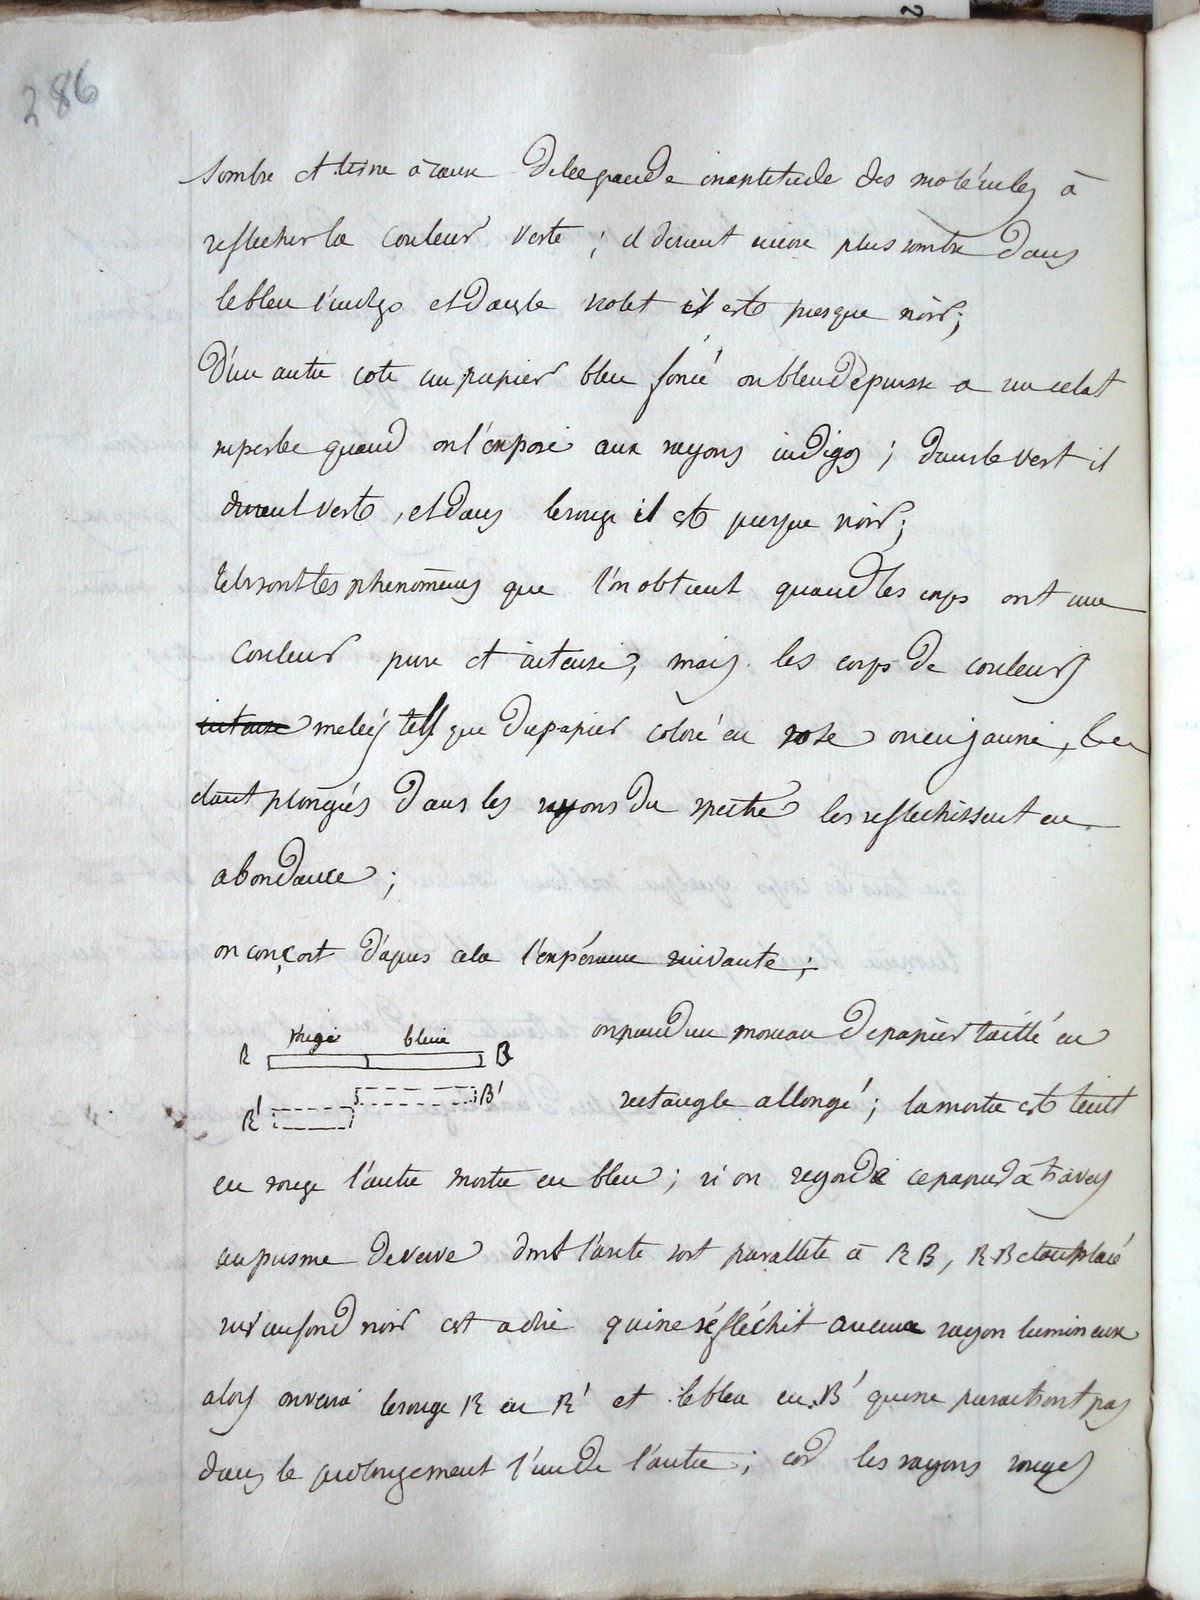 286
sombre et terne à cause de la grande inaptitude des molécules à
reflechir la couleur verte ; il devient encore plus sombre dans
le bleu l'indigo et dans le violet il est presque noir ;
D'un autre coté un papier bleu foncé ou bleu de prusse a un eclat
superbe quand on l'expose aux rayons indigos ; dans le vert il
devient vert, et dans le rouge il est presque noir ;
tels sont les phenomènes que l'on obtient quand les corps ont une
couleur pure et intense, mais les corps de couleurs
intense melées tels que du papier coloré en rose ou en jaune, 
etant plongés dans les rayons du spectre les reflechissent en
abondance ;
on conçoit d'apres cela l'expérience suivante ;
R rouge bleue B
R' B'
on prend un morceau de papier taillé en
rectangle allongé ; la moitie est teint
en rouge l'autre moitie en bleu ; si on regarde ce papier à travers
un prisme de verre dont l'arete soit parallele à RB, RB etant placé
sur un fond noir est a dire qui ne réfléchit aucun rayon lumineux
alors on verra le rouge R en R' et le bleu en B' qui ne paraitront pas
dans le prolongement l'un de l'autre ; car les rayons rouges